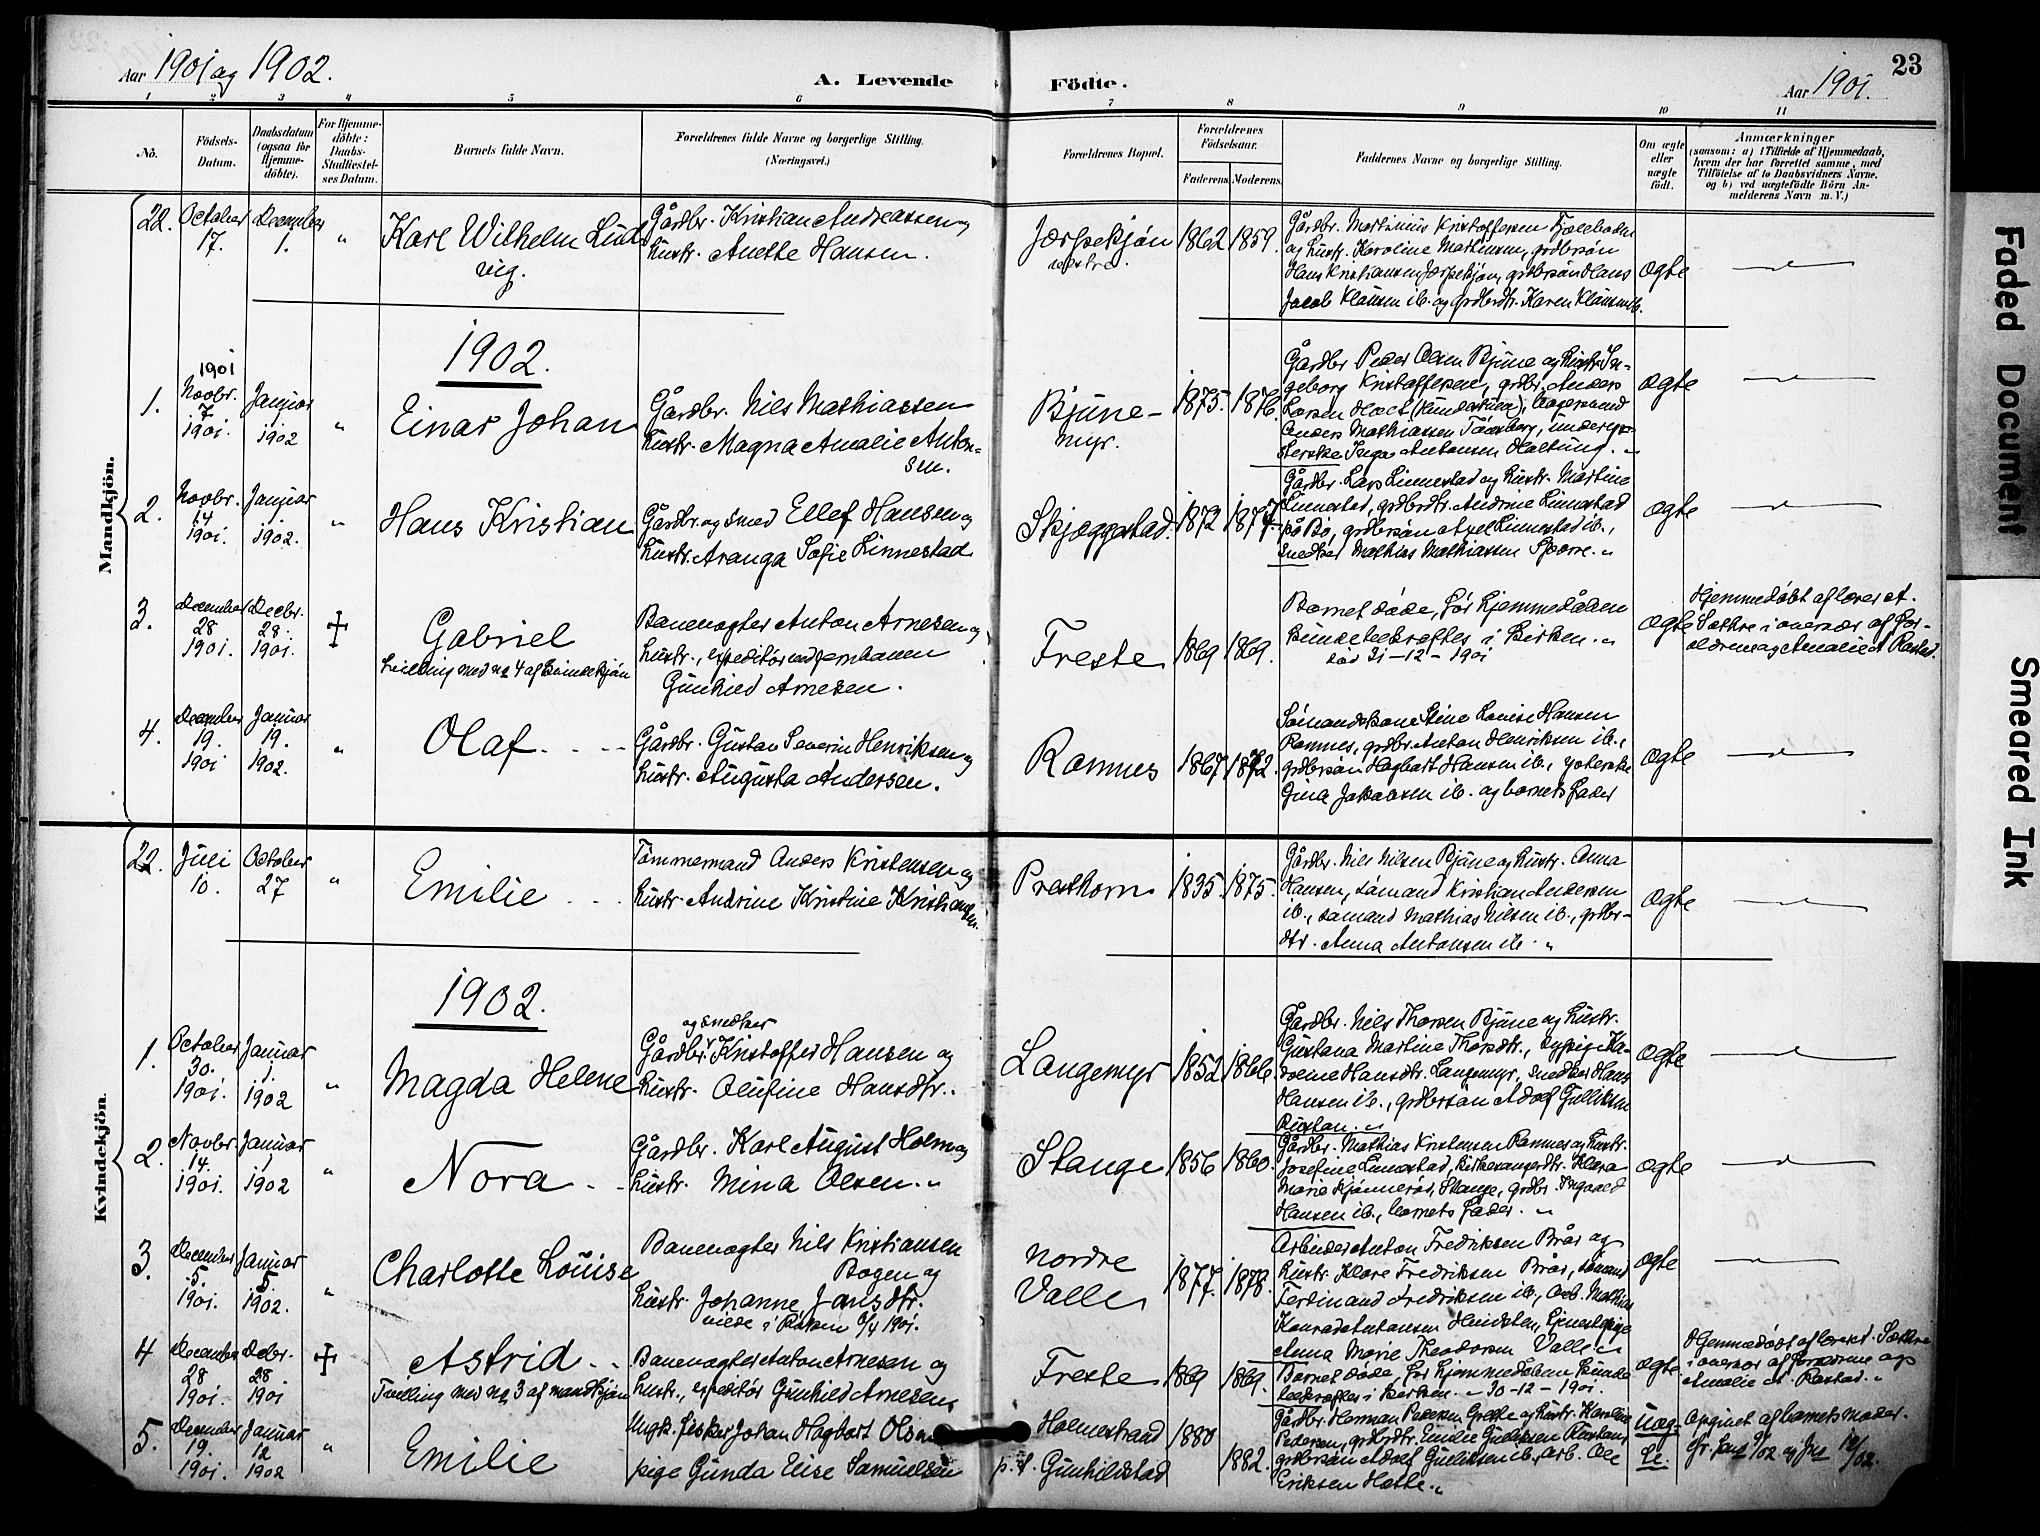 Aar 1901 og 1902.
A. Levende Födte.
Aar 1901.
23
1 2 3 4 5 6 7 8 9 10 11
No.
Födsels-Datum.
Daabsdatum (ogsaa for Hjemme-döbte).
For Hjemme-döbte: Daabs-Stadfæstel-ses Datum.
Barnets fulde Navn.
Forældrenes fulde Navne og borgerlige Stilling.
(Næringsvei.)
Forældrenes Bopæl.
Forældrenes Födselsaar.
Faderens. Moderens.
Faddernes Navne og borgerlige Stilling.
Om ægte eller uægte födt.
Anmærkninger
(saasom: a) i Tilfælde af Hjemmedaab,
hvem der har forrettet samme, med
Tilföielse af to Daabsvidners Navne,
og b) ved uægtefödte Börn An-
melderens Navn m. V.)
Mandkjön.
22. October 17. December 1. "
Karl Wilhelm Lud-
vig.
Gårdbr. Kristian Andreassen og
hustr. Anette Hansen.
Jærpekjøn
vestre.
1862 1859.
Gårdbr. Martinius Kristoffersen Fjølebaden
og hustr. Karoline Martinsen, grdbrsøn
Hans Kristiansen Jærpekjøn, grdbrsøn Hans
Jacob Klausen ib. og grdbrdtr. Karen Klausen ib.
ægte
1902.
1. 1901 Novbr. 7 1901. Januar 1 1902 "
Einar Johan
Gårdbr. Nils Mathiassen
hustr. Magna Amalie Anton-
sen.
Bjune-
myr.
1875. 1876.
Gårdbr. Peder Olsen Bjune og hustr. In-
geborg Kristoffersen, grdbr. Anders
Larsen
Anders Mathiassen Tönsberg,
Inga Antonsen Holtung. "
ægte
2. Novbr. 14 1901. Januar 1 1902. "
Hans Kristian
Gårdbr. og smed Ellef Hansen og
hustr. Aranga Sofie Linnestad
Skjæggestad.
1872 1877.
Gårdbr. Lars Linnestad og hustr. Martine
Linnestad, grdbrdtr. Andrine Linnestad
på Bø, grdbrsøn Axel Linnestad ib.,
snedker Mathias Mathiassen Sporre. "
ægte
3. December 28 1901. Decbr. 28. 1901. +
Gabriel
tvilling med no 4 af Kvindekjøn
Banevogter Anton Arnesen og
hustr., expeditör ved jernbanen
Gunhild Arnesen.
Freste
1869 1869.
Barnet døde, før hjemmedåben
kunde bekræftes i kirken. "
død 31-12-1901
ægte
Hjemmedöbt af lærer A.
Sæthre i overvær af for-
ældrene og Amalie A. Rastad.
4. December 19. 1901 Januar 19. 1902. "
Olaf.
Gårdbr. Gustav Severin Henriksen og
hustr. Augusta Andersen.
Ramnes
1867 1872.
Sømandskone Stine Louise Hansen
Ramnes, grdbr. Anton Henriksen ib.,
grdbrsøn Hagbart Hansen ib.,
Gina Jakobsen ib. og barnets fader
ægte
Kvindekjön.
22. Juli 10. October 27 "
Emilie
Tømmermand Anders Kristensen og
hustr. Andrine Kristine Kristiansen.
Presthorn
1835 1875.
Gårdbr. Nils Nilsen Bjune og hustr. Anna
Hansen, sømand Kristian Andersen
ib., sømand Mathias Nilsen ib., grdbr-
dtr. Anna Antonsen ib. "
ægte
1902.
1. October 30. 1901. Januar 1. 1902 "
Magda Helene
og snedker
Gårdbr. Kristoffer Hansen og
hustr. Olufine Hansdtr.
Langemyr
1852 1866.
Gårdbr. Nils Thorsen Bjune og hustr.
Gustava Martine Thorsdtr., sypige Ka-
roline Hansdtr. Langemyr, snedker Hans
Hansen ib., grdbrsøn Adolf Gulliksen
Rustan. "
ægte
2. Novbr. 14. 1901. Januar 1 1902 "
Nora
Gårdbr. Karl August Holm og
hustr. Mina Olsen. "
Stange
1856 1860.
Gårdbr. Mathias Kristensen Ramnes og hustr.
Josefine Linnestad, kirkesangerdtr. Klara
Marie Kjønnerød, Stange, grdbr. Ingvald
Hansen ib., barnets fader. "
ægte
3. December 5. 1901. Januar 5. 1902. "
Charlotte Louise
Banevogter Nils Kristiansen
Bogen og
hustr. Johanne Jansdtr.
viede i Røken 6/4 1901.
Nordre
Valle
1877. 1878.
Arbeider Anton Fredriksen Brår og
hustr. Klara Fredriksen Brår, sømand
Ferdinand Fredriksen ib., arb. Mathias
Konrad Antonsen Hendsten, tjenestpige
Anna Marie Theodorsen Valle. "
ægte
4 December 28 1901. Decbr. 28. 1901 +
Astrid
Tvilling med no 3 af mandkjøn
Banevogter Anton Arnesen og
hustr., expeditör Gunhild Arnesen.
Freste
1869 1869.
Barnet døde, før hjemmedåben kunde
bekræftes i kirken. " 30-12-1901.
ægte
Hjemmedöbt af lærer A. Sæthre
i overvær af forældrene og
Amalie A. Rastad. "
5. December 19. 1901. Januar 12 1902 "
Emilie
Ungk. fisker Johan Hagbart Olsen
pige Gunda Elise Samuelsen
Holmestrand
p.t. Gunhildstad
1880 1882.
Gårdbr. Herman Pedersen Grette og hustr. Karoline
Pedersen, grdbrdtr. Emilie Gulliksen Rustan,
grdbrsøn Adolf Gulliksen ib., arb. Ole
Eriksen Hætte. "
Uæg-
te.
Opgivet af barnets moder.
Faded Document
Smeared Ink